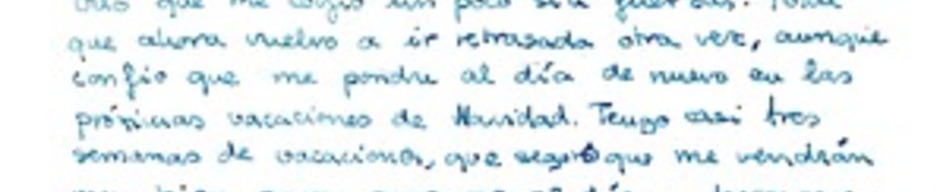 que me cogió un poco sin
que ahora vuelvo a ir retrasada otra vez, aunque
confío que me pondre al día de nuevo en las
próximas vacaciones de Navidad. Tengo casi tres
semanas de vacaciones, que seguro que me vendrán